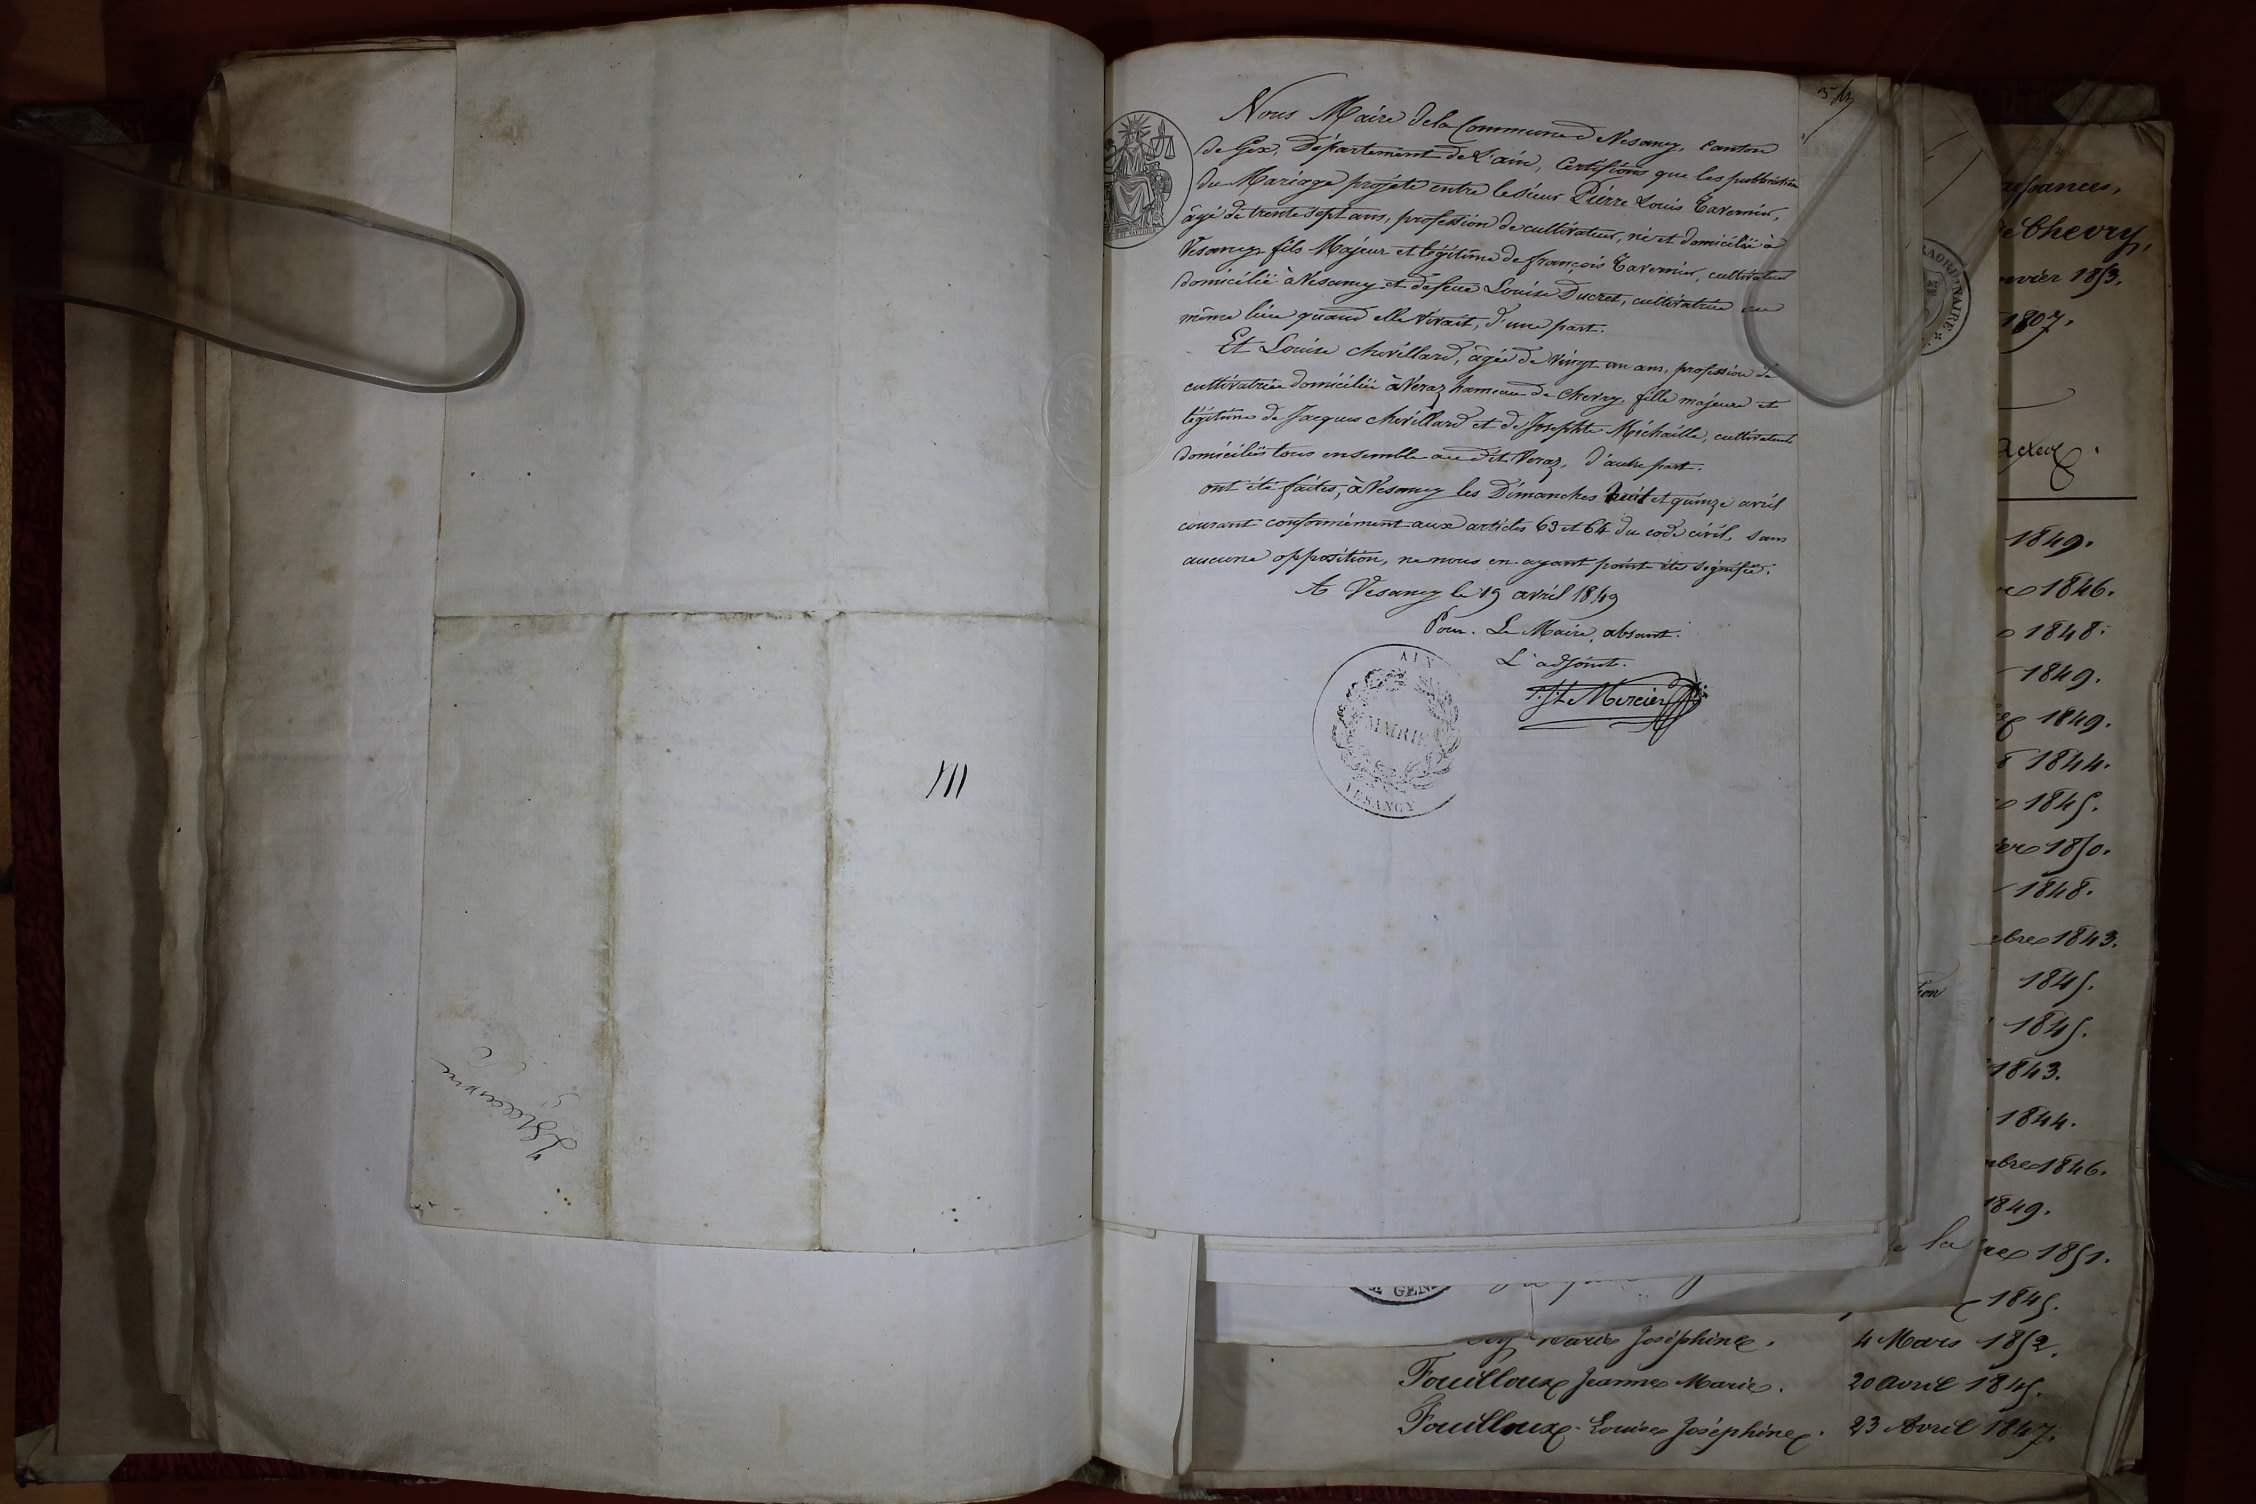 Nous Maire de la Commune de Vesancy, canton
de Gex, Département de l'ain, Certifions que les publications
du Mariage projeté entre le sieur Pierre Louis Tavernier,
âgé de trente sept ans, profession de cultivateur, né et domicilié à
Vesancy fils Majeur et légitime de françois Tavernier, cultivateur
domicilié à Vesancy et defeue Louise Ducret, cultivatrice au
même lieu quand elle vivait, d'une part.
Et Louise Chevillard, âgée de vingt un ans, profession de
cultivatrice domiciliée à Véraz hameau de Chevry, fille majeure et
légitime de Jacques Chevillard et de Josephte Michaille, cultivateurs
domiciliés tous ensemble au dit Veraz, d'autre part.
ont été faites, à Vesancy les Dimanches huit et quinze avril
courant conformément aux articles 63 et 64 du code civil, sans
aucune opposition, ne nous en ayant point été signifié.
A Vesancy le 19 avril 1849
Pour Le Maire absent.
L'adjoint.
Mercier
AIN
MAIRIE
VESANCY
EXTRAORDINAIRE
GEN
Chevry,
1853.
1807.
1849.
1846.
1848.
1849.
1849.
1844.
1845.
1850.
1848.
bre 1843.
1845.
1845.
1843.
1844.
mbre 1846.
1849.
la
1851.
1845.
Marie Joséphine. 4 Mars 1852.
Fouilloux Jeanne Marie. 20 Avril 1845.
Fouilloux Louise Joséphine. 23 Avril 1847.